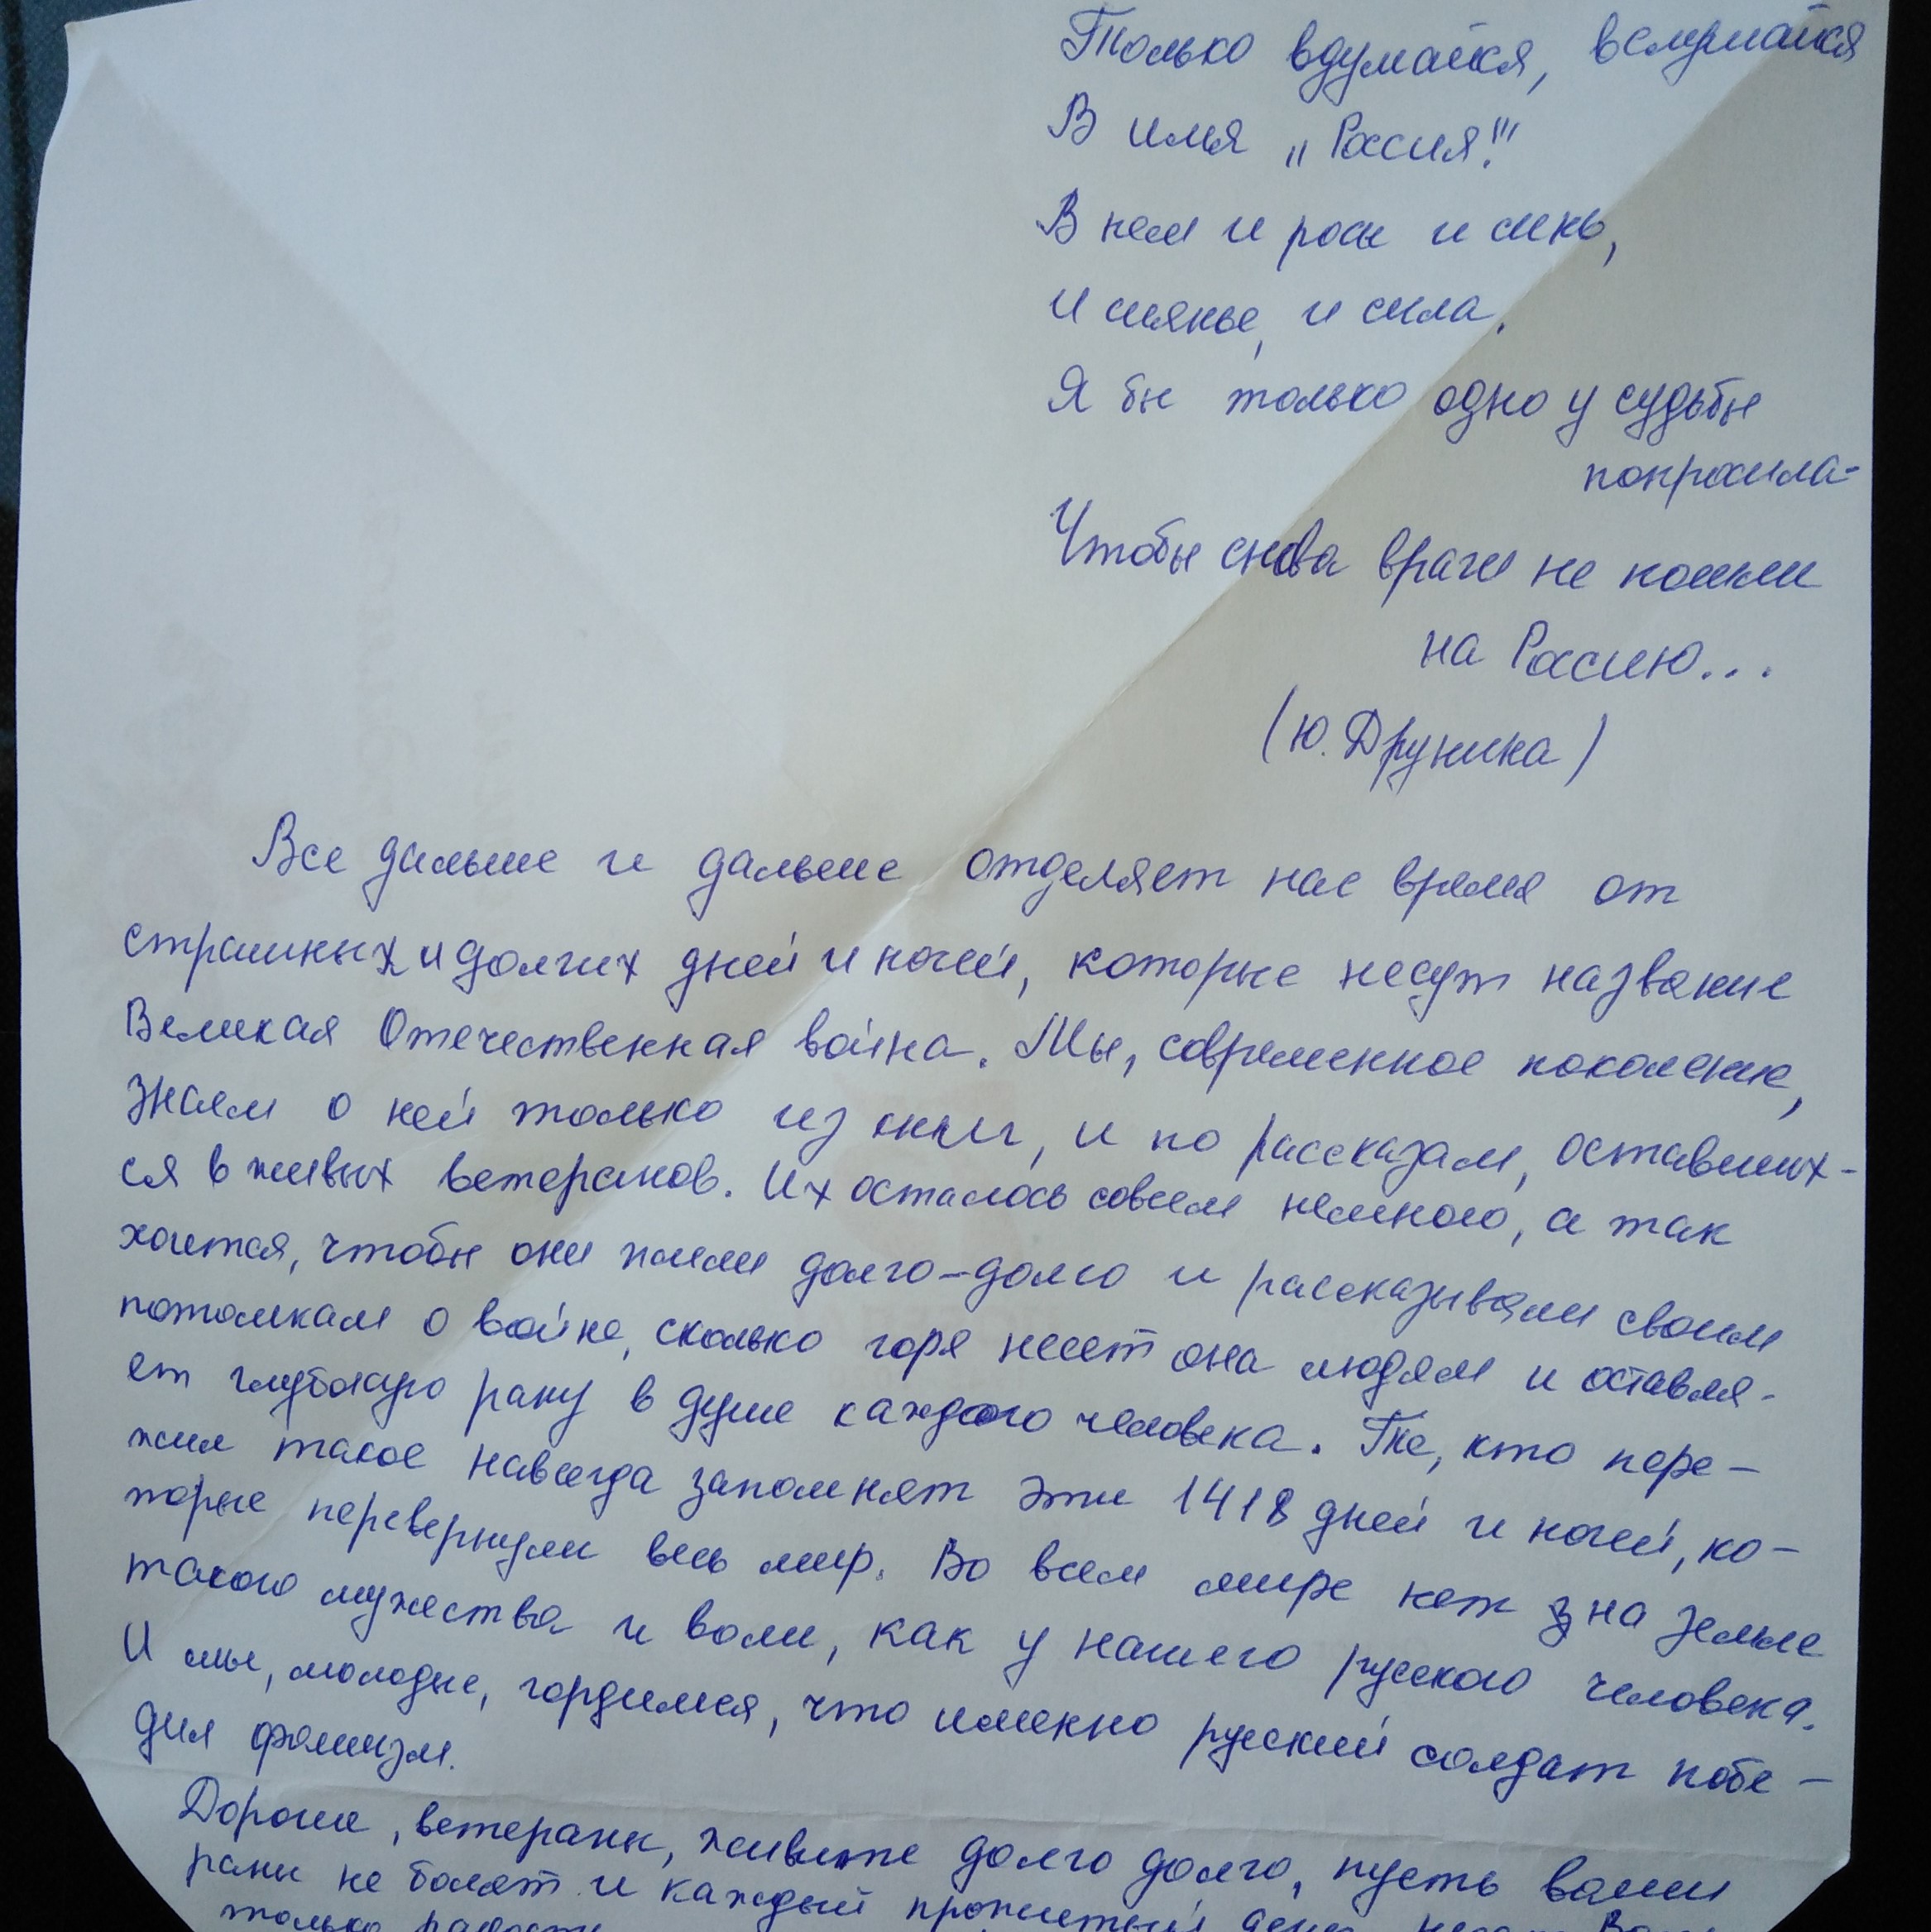 Только вдумайся, вслушайся
В имя „Россия"!!
В нем и росы и синь,
И сиянье, и сила.
Я бы только одно у судьбы
попросила-
Чтобы снова враги не пошли
на Россию...
(Ю. Друнина)
Все дальше и дальше отделяет нас время от
страшных и долгих дней и ночей, которые несут название
Великая Отечественная война. Мы, современное поколение,
знаем о ней только из книг, и по рассказам, оставших-
ся в живых ветеранов. Их осталось совсем немного, а так
хочется, чтобы они жили долго-долго и рассказывали своим
потомкам о войне, сколько горя несет она людям и оставля-
ет глубокую рану в душе каждого человека. Те, кто пере-
жил такое навсегда запомнят эти 1418 дней и ночей, ко-
торые перевернули весь мир. Во всем мире нет на земле
такого мужества и воли, как у нашего русского человека.
И мы, молодые, гордимся, что именно русский солдат побе-
дил фашизм.
Дорогие, ветераны, живите долго долго, пусть ваши
раны не болят и каждый прожитый день несет Вам
только радость